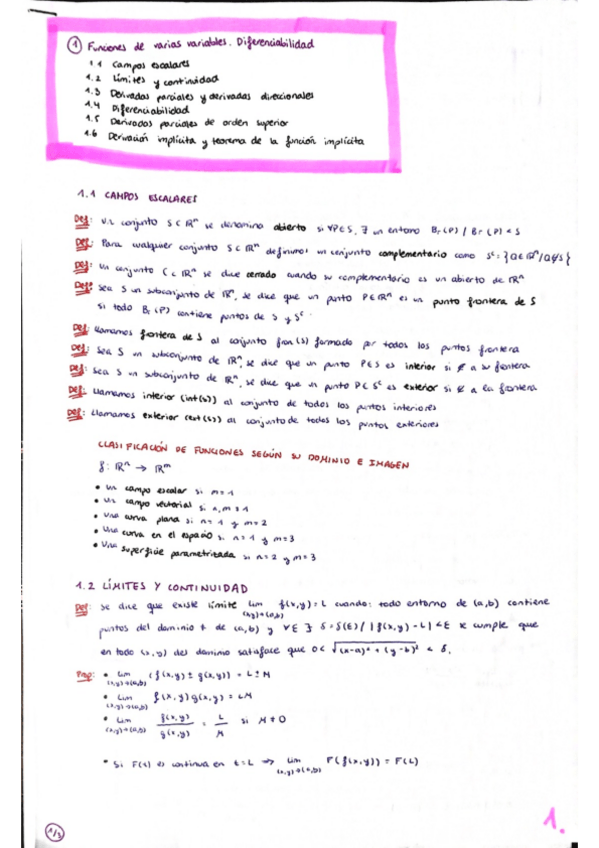 1 Funciones de varias variables. Diferenciabilidad
1.1 Campos escalares
1.2 Límites y continuidad
1.3 Derivadas parciales y derivadas direccionales
1.4 Diferenciabilidad
1.5 Derivadas parciales de orden superior
1.6 Derivación implícita y teorema de la función implícita
1.1 CAMPOS ESCALARES
Def: Un conjunto S⊂ℝⁿ se denomina abierto si ∀P∈S, ∃ un entorno Br(P) / Br(P)⊂S
Def: Para cualquier conjunto S⊂ℝⁿ definimos un conjunto complementario como Sᶜ = {Q∈ℝⁿ/Q∉S}
Def: Un conjunto C⊂ℝⁿ se dice cerrado cuando su complementario es un abierto de ℝⁿ
Def: Sea S un subconjunto de ℝⁿ, se dice que un punto P∈ℝⁿ es un punto frontera de S
si todo Br(P) contiene puntos de S y Sᶜ.
Def: Llamamos frontera de S al conjunto fron(S) formado por todos los puntos frontera
Def: Sea S un subconjunto de ℝⁿ, se dice que un punto P∈S es interior si ∉ a su frontera
Def: Sea S un subconjunto de ℝⁿ, se dice que un punto P∈Sᶜ es exterior si ∉ a la frontera
Def: Llamamos interior (int(S)) al conjunto de todos los puntos interiores
Def: Llamamos exterior (ext(S)) al conjunto de todos los puntos exteriores
CLASIFICACIÓN DE FUNCIONES SEGÚN SU DOMINIO E IMAGEN
f: ℝⁿ → ℝᵐ
• Un campo escalar si m=1
• Un campo vectorial si n,m>1
• Una curva plana si n=1 y m=2
• Una curva en el espacio si n=1 y m=3
• Una superficie parametrizada si n=2 y m=3
1.2 LÍMITES Y CONTINUIDAD
Def: Se dice que existe límite lim (x,y)→(a,b) f(x,y)=L cuando: todo entorno de (a,b) contiene
puntos del dominio f de (a,b) y ∀ε ∃ δ=δ(ε) / |f(x,y)-L|<ε se cumple que
en todo (x,y) del dominio satisface que 0<√((x-a)²+(y-b)²) < δ.
Prop: • lim (x,y)→(a,b) (f(x,y) ± g(x,y)) = L±M
• lim (x,y)→(a,b) f(x,y)g(x,y) = LM
• lim (x,y)→(a,b) f(x,y)/g(x,y) = L/M si M≠0
• Si F(t) es continua en t=L ⇒ lim (x,y)→(a,b) F(f(x,y)) = F(L)
1/3
1.